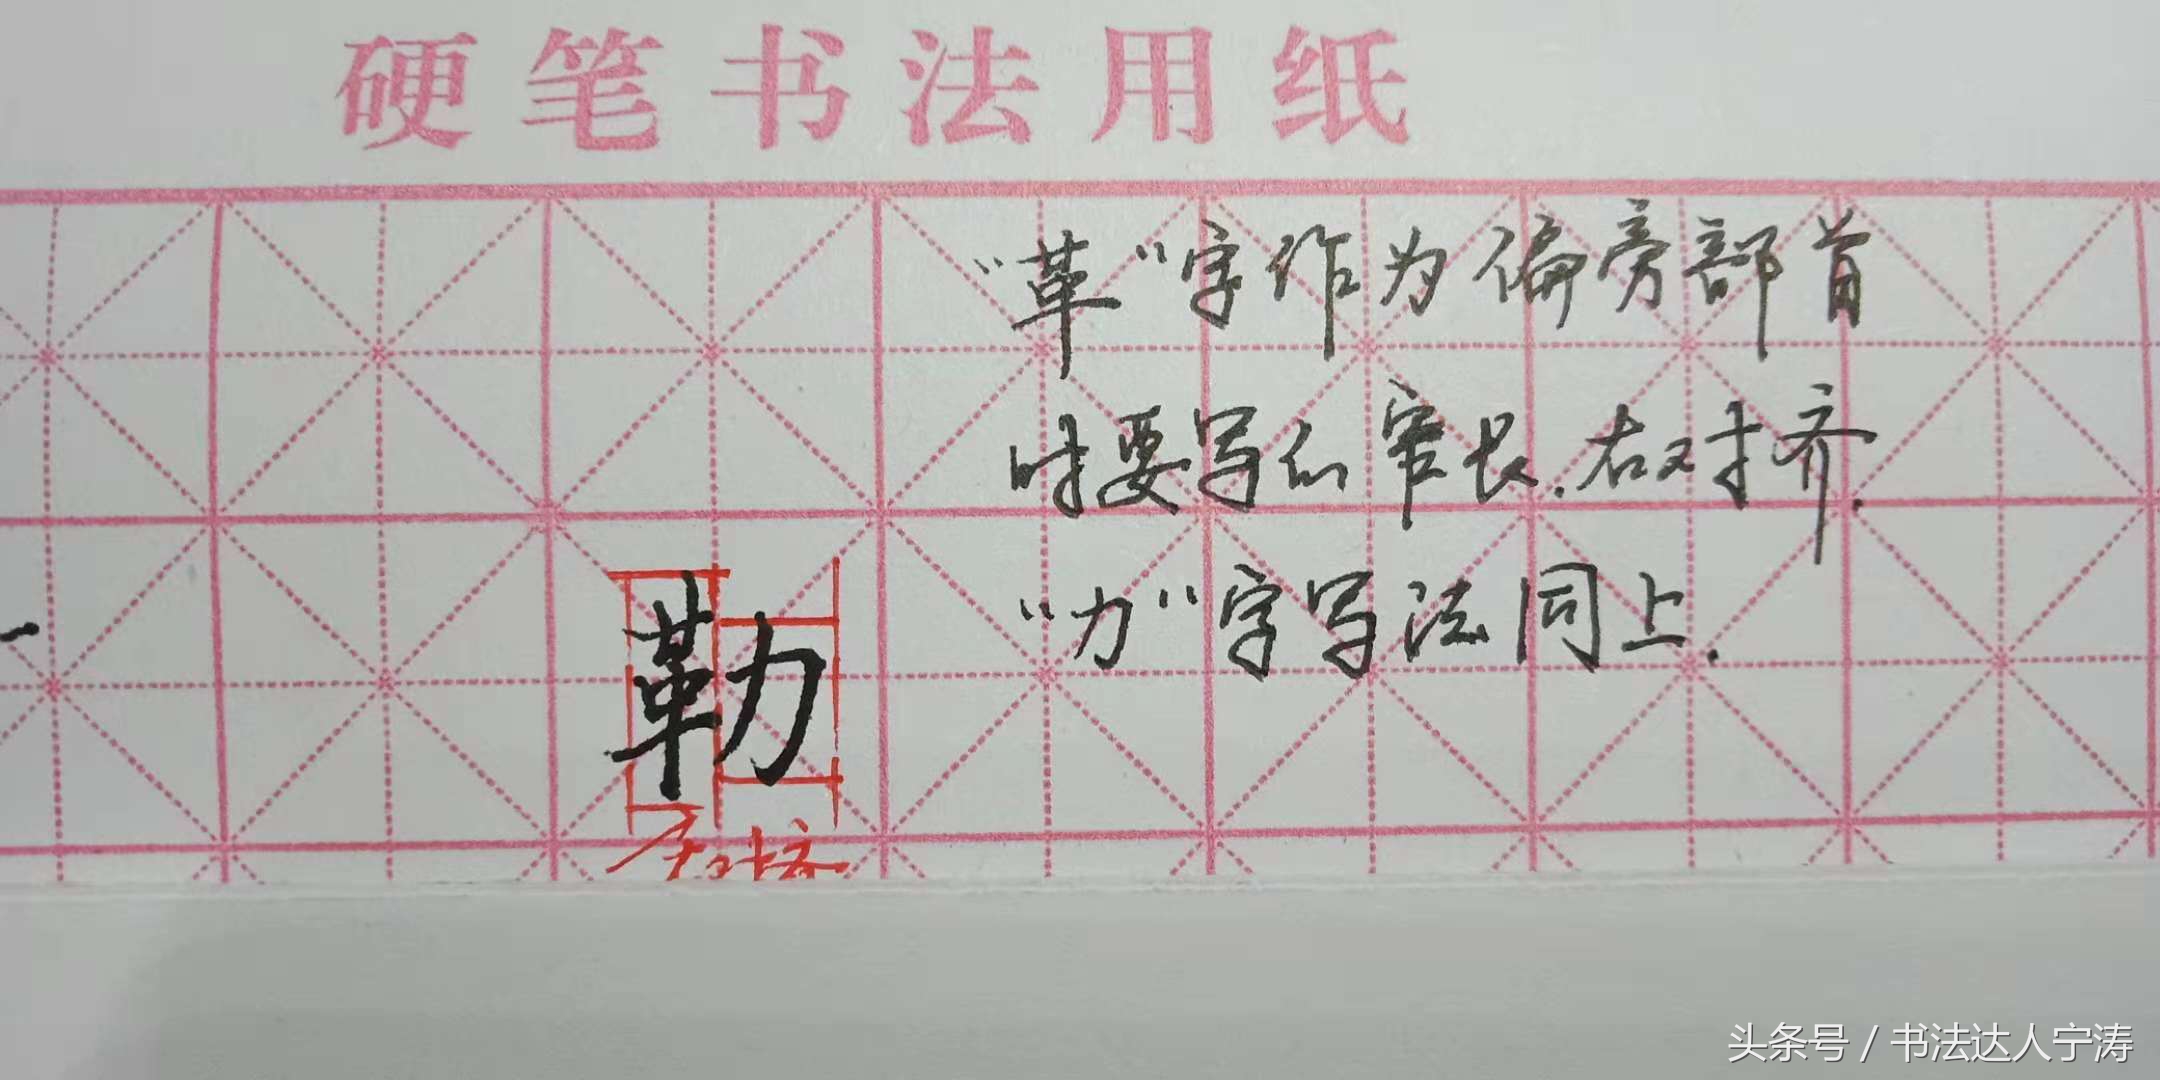 硬笔书法用纸
“革”字作为偏旁部首
时要写的窄长.右对齐.
“力”字写法同上.
勒
右对齐
头条号 / 书法达人宁涛